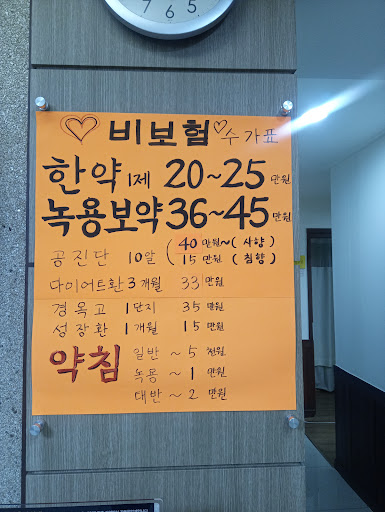 7 6 5
비보험 수가표
한약 1제 20~25 만원
녹용보약 36~45 만원
공진단 10알 ( 40 만원~ ( 사향 )
15 만원 ( 침향 )
다이어트환 3개월 33 만원
경옥고 1단지 35 만원
성장환 1개월 15 만원
약침 일반 ~ 5 천원
녹용 ~ 1 만원
대반 ~ 2 만원